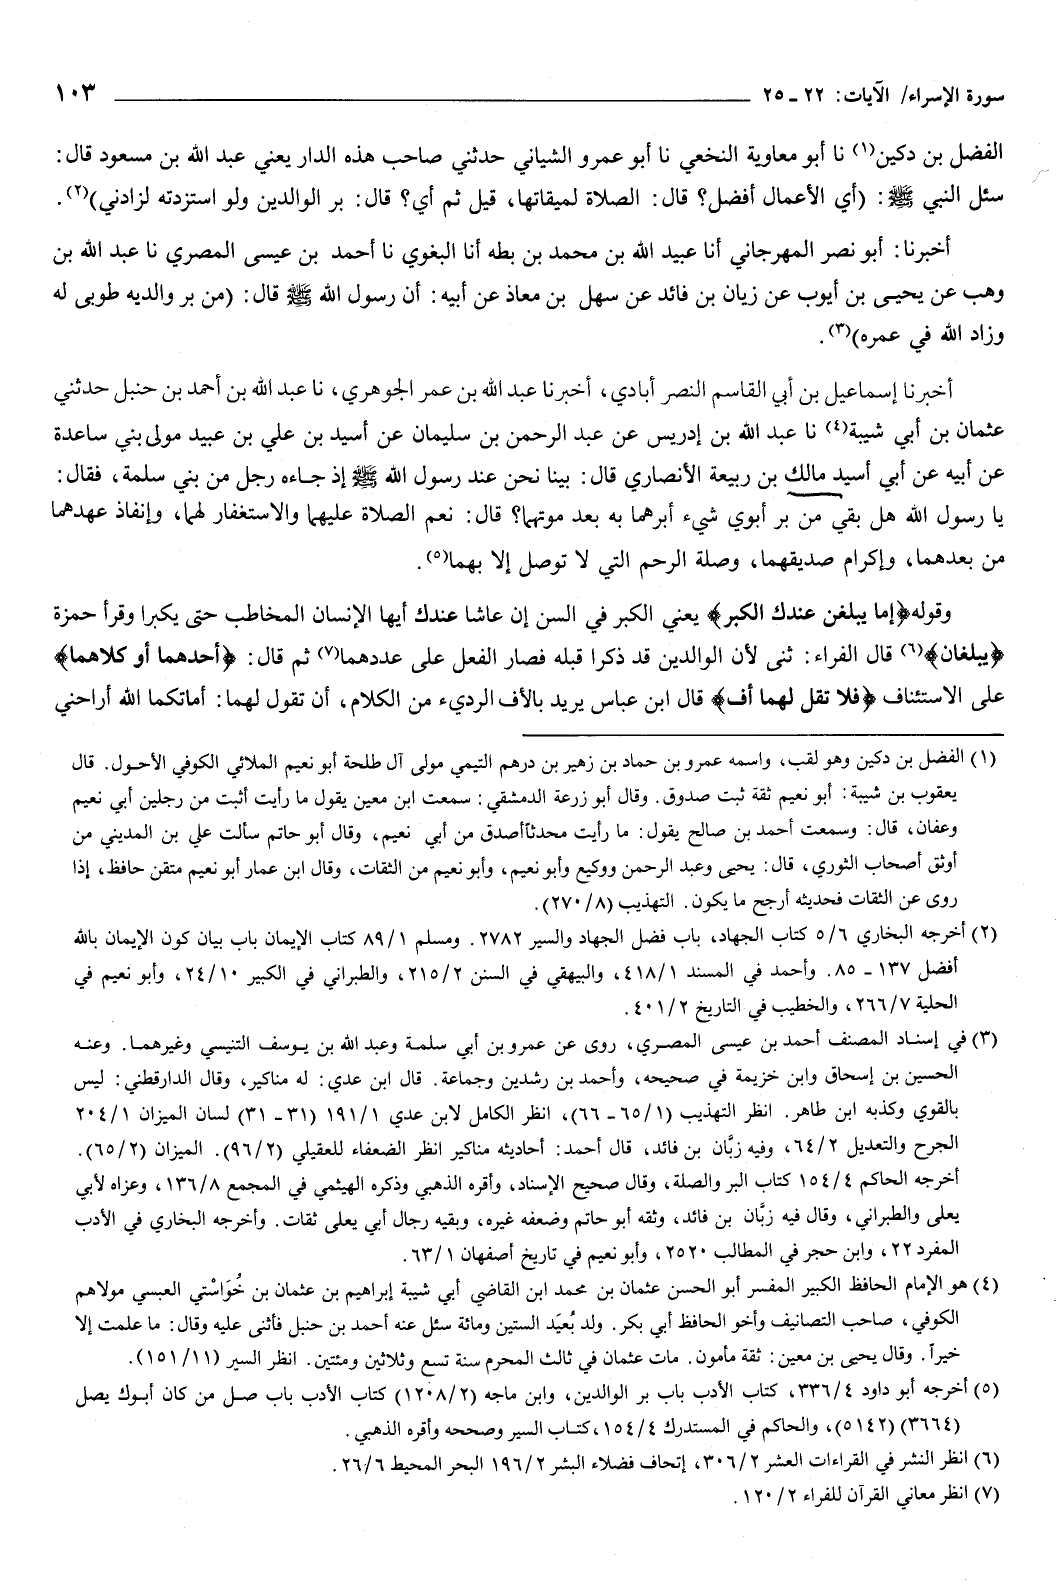 سورة الإسراء/ الآيات: ٢٢ ـ ٢٥ ١٠٣
الفضل بن دكين(١) نا أبو معاوية النخعي نا أبو عمرو الشياني حدثني صاحب هذه الدار يعني عبد الله بن مسعود قال:
سئل النبي ﷺ: (أي الأعمال أفضل؟ قال: الصلاة لميقاتها، قيل ثم أي؟ قال: بر الوالدين ولو استزدته لزادني)(٢).
أخبرنا: أبو نصر المهرجاني أنا عبيد الله بن محمد بن بطه أنا البغوي نا أحمد بن عيسى المصري نا عبد الله بن
وهب عن يحيى بن أيوب عن زيان بن فائد عن سهل بن معاذ عن أبيه: أن رسول الله ﷺ قال: (من بر والديه طوبى له
وزاد الله في عمره)(٣).
أخبرنا إسماعيل بن أبي القاسم النصر أبادي، أخبرنا عبد الله بن عمر الجوهري، نا عبد الله بن أحمد بن حنبل حدثني
عثمان بن أبي شيبة(٤) نا عبد الله بن إدريس عن عبد الرحمن بن سليمان عن أسيد بن علي بن عبيد مولى بني ساعدة
عن أبيه عن أبي أسيد مالك بن ربيعة الأنصاري قال: بينا نحن عند رسول الله ﷺ إذ جاءه رجل من بني سلمة، فقال:
يا رسول الله هل بقي من بر أبوي شيء أبرهما به بعد موتهما؟ قال: نعم الصلاة عليهما والاستغفار لهما، وإنفاذ عهدهما
من بعدهما، وإكرام صديقهما، وصلة الرحم التي لا توصل إلا بهما(٥).
وقوله﴿إما يبلغن عندك الكبر﴾ يعني الكبر في السن إن عاشا عندك أيها الإنسان المخاطب حتى يكبرا وقرأ حمزة
﴿يبلغان﴾(٦) قال الفراء: ثنى لأن الوالدين قد ذكرا قبله فصار الفعل على عددهما(٧) ثم قال: ﴿أحدهما أو كلاهما﴾
على الاستئناف ﴿فلا تقل لهما أف﴾ قال ابن عباس يريد بالأف الرديء من الكلام، أن تقول لهما: أماتكما الله أراحني
(١) الفضل بن دكين وهو لقب، واسمه عمرو بن حماد بن زهير بن درهم التيمي مولى آل طلحة أبو نعيم الملائي الكوفي الأحول. قال
يعقوب بن شيبة: أبو نعيم ثقة ثبت صدوق. وقال أبو زرعة الدمشقي: سمعت ابن معين يقول ما رأيت أثبت من رجلين أبي نعيم
وعفان، قال: وسمعت أحمد بن صالح يقول: ما رأيت محدثاًأصدق من أبي نعيم، وقال أبو حاتم سألت علي بن المديني من
أوثق أصحاب الثوري، قال: يحيى وعبد الرحمن ووكيع وأبو نعيم، وأبو نعيم من الثقات، وقال ابن عمار أبو نعيم متقن حافظ، إذا
روى عن الثقات فحديثه أرجح ما يكون. التهذيب (٨/ ٢٧٠).
(٢) أخرجه البخاري ٦/ ٥ كتاب الجهاد، باب فضل الجهاد والسير ٢٧٨٢. ومسلم ١/ ٨٩ كتاب الإيمان باب بيان كون الإيمان بالله
أفضل ١٣٧ ـ ٨٥. وأحمد في المسند ١/ ٤١٨، والبيهقي في السنن ٢/ ٢١٥، والطبراني في الكبير ١٠/ ٢٤، وأبو نعيم في
الحلية ٧/ ٢٦٦، والخطيب في التاريخ ٢/ ٤٠١.
(٣) في إسناد المصنف أحمد بن عيسى المصري، روى عن عمرو بن أبي سلمة وعبد الله بن يوسف التنيسي وغيرهما. وعنه
الحسين بن إسحاق وابن خزيمة في صحيحه، وأحمد بن رشدين وجماعة. قال ابن عدي: له مناكير، وقال الدارقطني: ليس
بالقوي وكذبه ابن طاهر. انظر التهذيب (١/ ٦٥ ـ ٦٦)، انظر الكامل لابن عدي ١/ ١٩١ (٣١ ـ ٣١) لسان الميزان ١/ ٢٠٤
الجرح والتعديل ٢/ ٦٤، وفيه زبَّان بن فائد، قال أحمد: أحاديثه مناكير انظر الضعفاء للعقيلي (٢/ ٩٦). الميزان (٢/ ٦٥).
أخرجه الحاكم ٤/ ١٥٤ كتاب البر والصلة، وقال صحيح الإسناد، وأقره الذهبي وذكره الهيثمي في المجمع ٨/ ١٣٦، وعزاه لأبي
يعلى والطبراني، وقال فيه زبَّان بن فائد، وثقه أبو حاتم وضعفه غيره، وبقيه رجال أبي يعلى ثقات. وأخرجه البخاري في الأدب
المفرد ٢٢، وابن حجر في المطالب ٢٥٢٠، وأبو نعيم في تاريخ أصفهان ١/ ٦٣.
(٤) هو الإمام الحافظ الكبير المفسر أبو الحسن عثمان بن محمد ابن القاضي أبي شيبة إبراهيم بن عثمان بن خُوَاسْتي العبسي مولاهم
الكوفي، صاحب التصانيف وأخو الحافظ أبي بكر. ولد بُعيَد الستين ومائة سئل عنه أحمد بن حنبل فأثنى عليه وقال: ما علمت إلا
خيراً. وقال يحيى بن معين: ثقة مأمون. مات عثمان في ثالث المحرم سنة تسع وثلاثين ومئتين. انظر السير (١١/ ١٥١).
(٥) أخرجه أبو داود ٤/ ٣٣٦، كتاب الأدب باب بر الوالدين، وابن ماجه (٢/ ١٢٠٨) كتاب الأدب باب صل من كان أبوك يصل
(٣٦٦٤) (٥١٤٢)، والحاكم في المستدرك ٤/ ١٥٤، كتاب السير وصححه وأقره الذهبي.
(٦) انظر النشر في القراءات العشر ٢/ ٣٠٦، إتحاف فضلاء البشر ٢/ ١٩٦ البحر المحيط ٦/ ٢٦.
(٧) انظر معاني القرآن للفراء ٢/ ١٢٠.